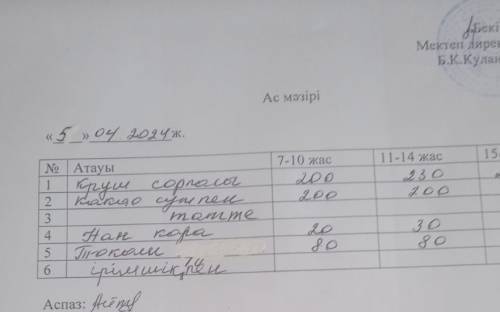 Бекі
Мектеп дирек
Б.К.Кулан
Ас мәзірі
«5» 04 2024ж.
№ Атауы 7-10 жас 11-14 жас 15
1 Круш сорпасы 200 230
2 Какао сүтпен 200 200
3 тәтте
4 Нан кара 20 30
5 Тюкали 80 80
6 ірімшікпен
Аспаз: